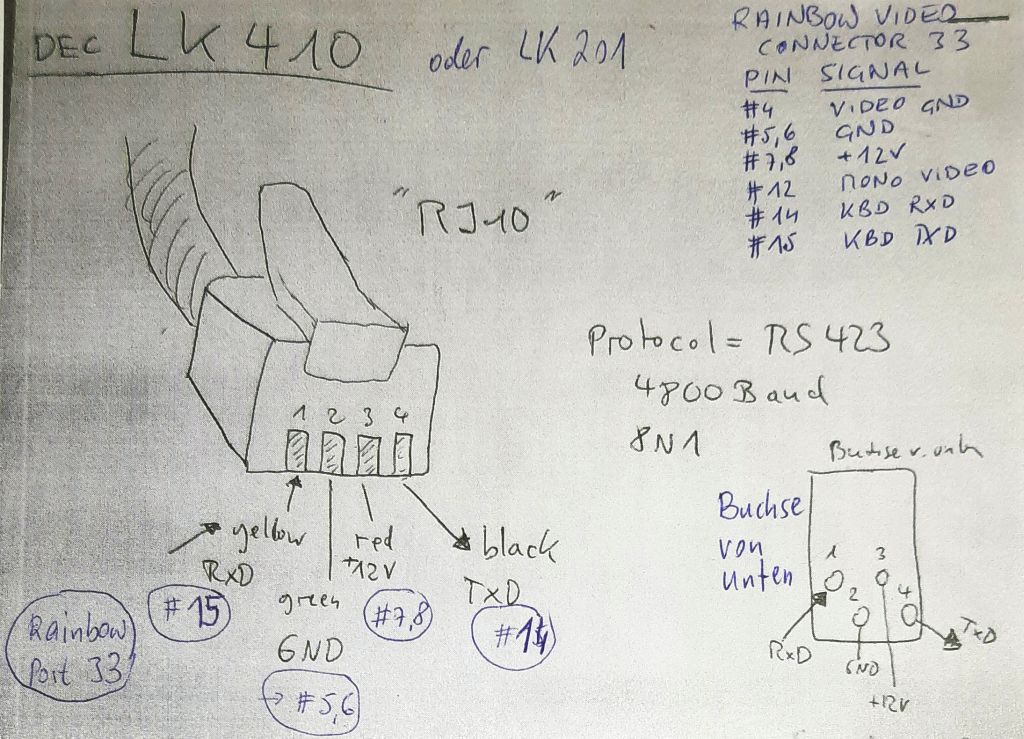 DEC LK410 oder LK201
RAINBOW VIDEO
CONNECTOR 33
PIN SIGNAL
#4 VIDEO GND
#5,6 GND
#7,8 +12V
#12 MONO VIDEO
#14 KBD RXD
#15 KBD TXD
"RJ10"
Protocol = RS423
4800 Baud
8N1
1 2 3 4
yellow
RxD
#15
green
GND
→ #5,6
red
+12V
#7,8
black
TxD
#14
Rainbow
Port 33
Buchse v. unten
Buchse
von
unten
1 2 3 4
RxD
GND
+12V
TxD